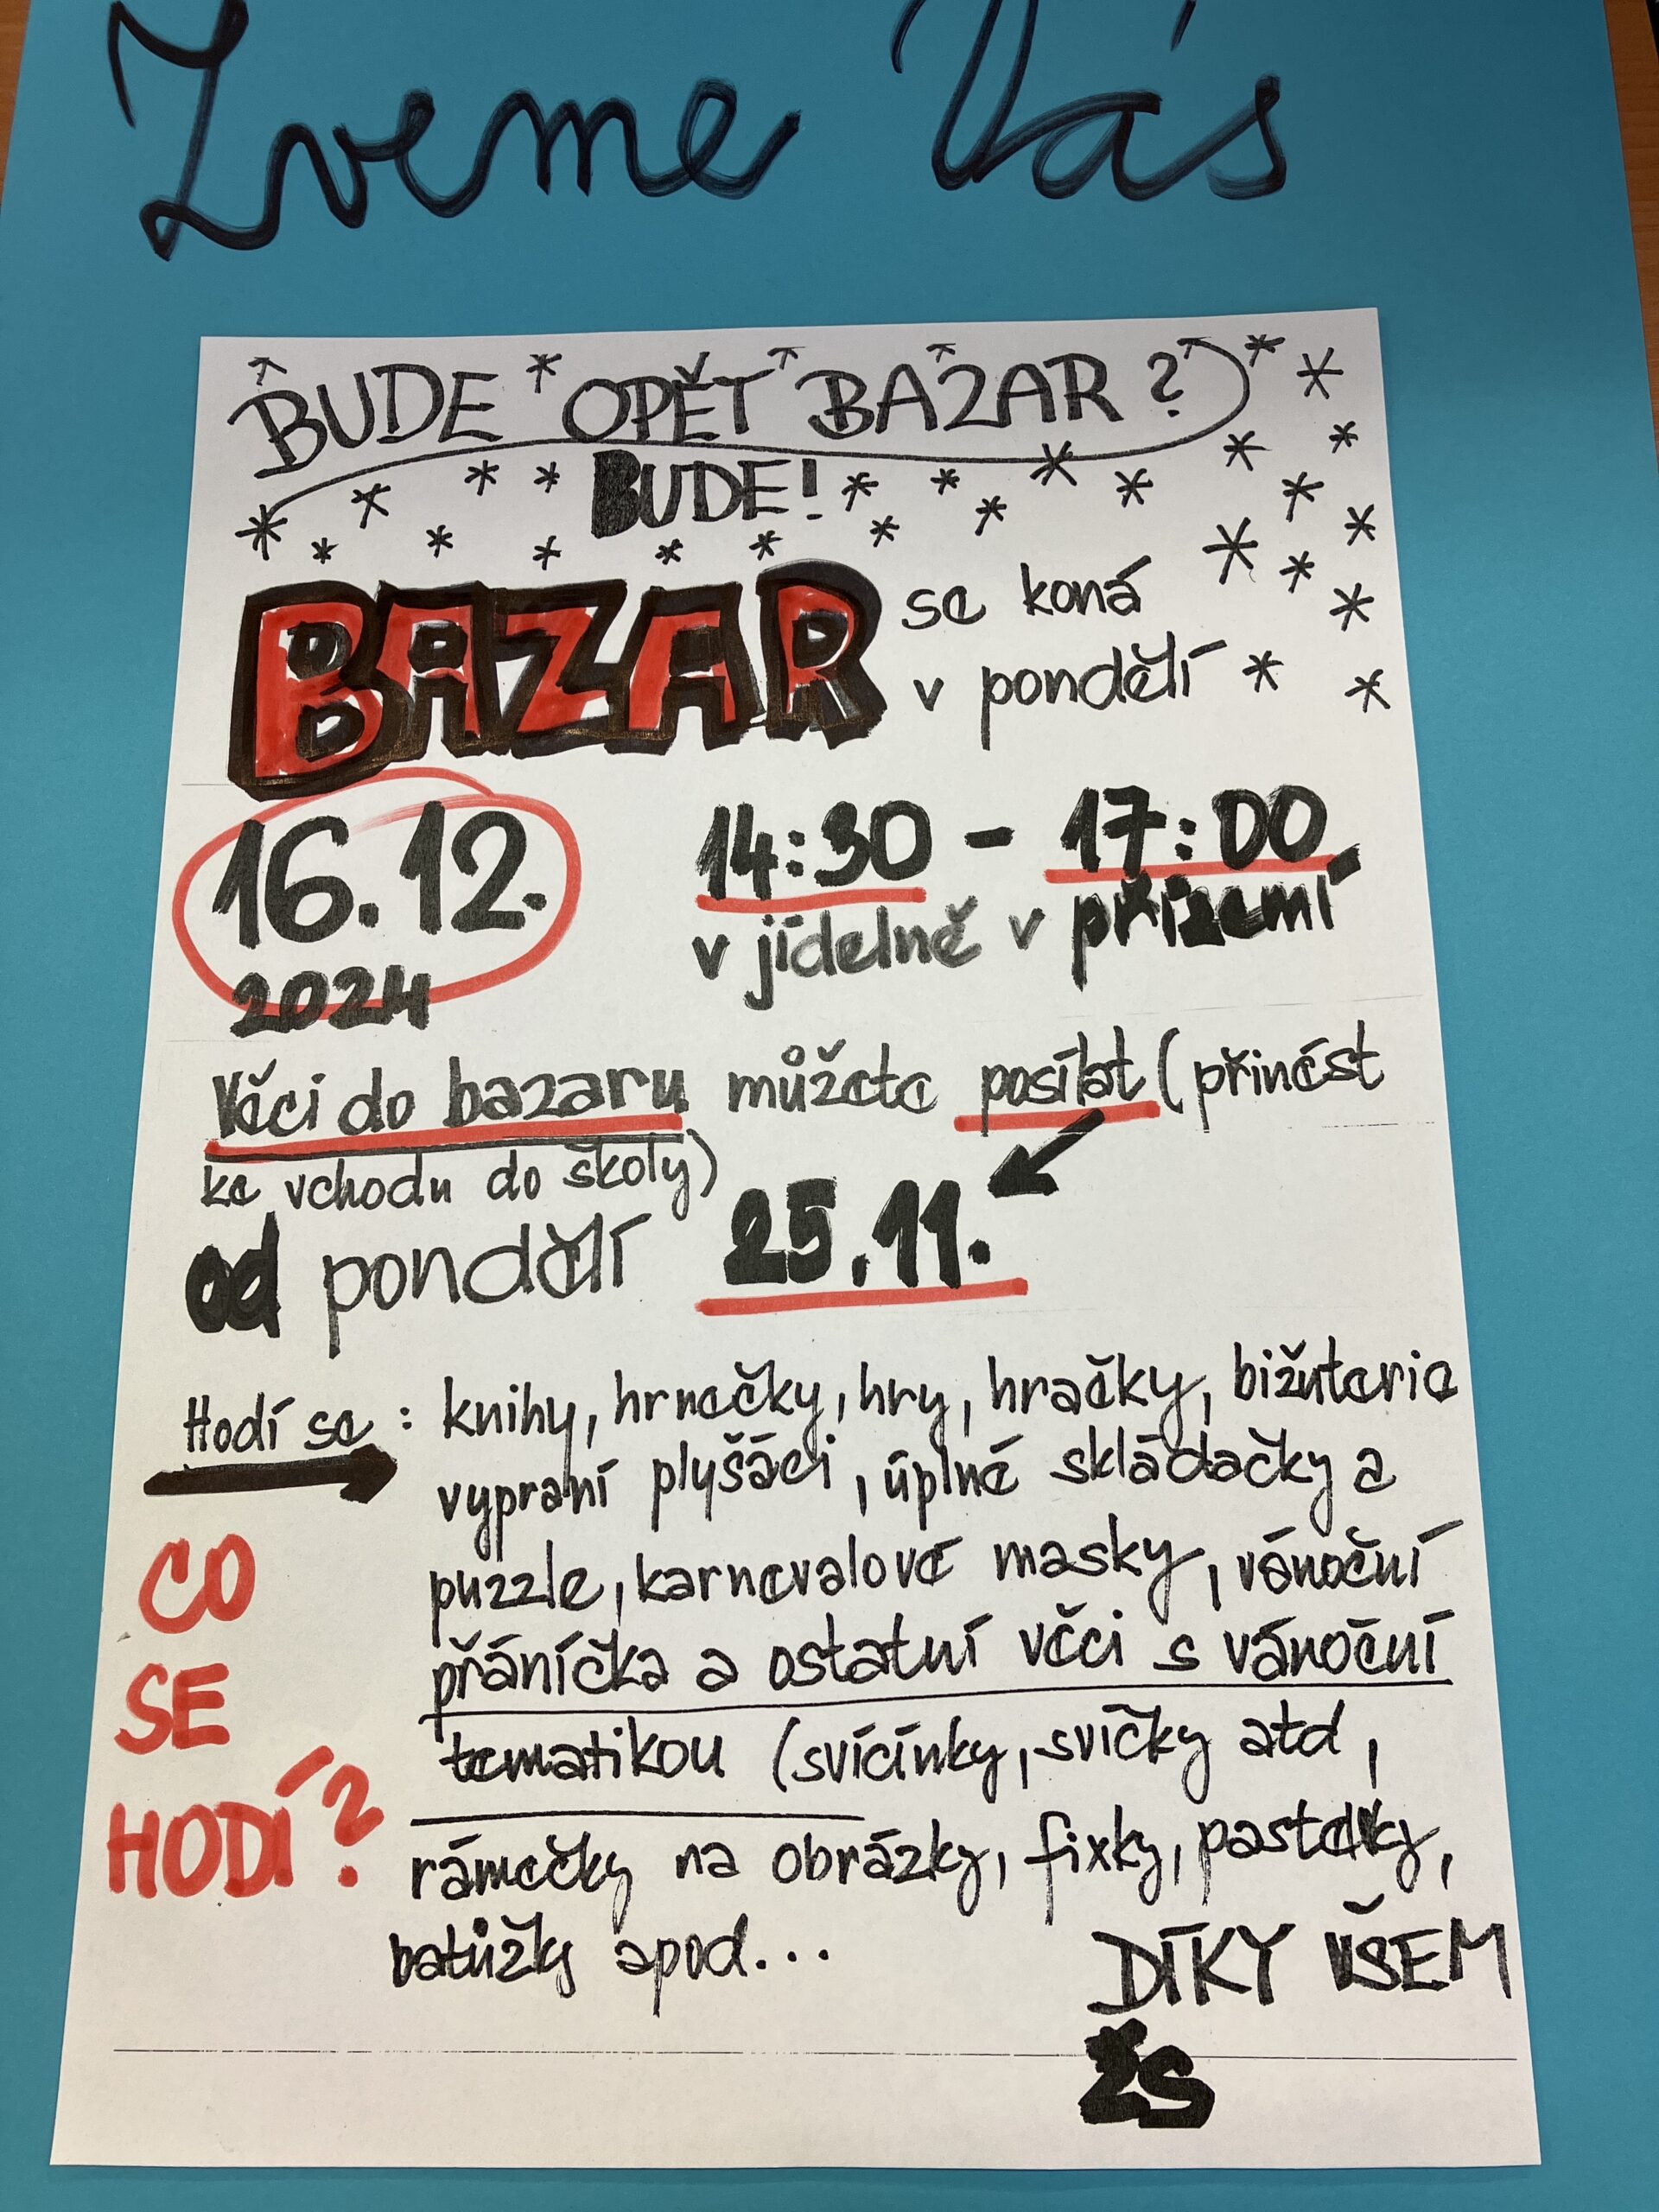 Zveme Vás
BUDE OPĚT BAZAR?
BUDE!
BAZAR se koná
v pondělí
16.12. 14:30 - 17:00
2024 v jídelně v přízemí
Věci do bazaru můžete posílat (přinést
ke vchodu do školy)
od pondělí 25.11.
Hodí se: knihy, hrnečky, hry, hračky, bižuterie
vypraní plyšáci, úplné skládačky a
CO puzzle, karnevalové masky, vánoční
SE přáníčka a ostatní věci s vánoční
tematikou (svícínky, svíčky atd,
HODÍ? rámečky na obrázky, fixky, pastelky,
batůžky apod...
DÍKY VŠEM
ŽS